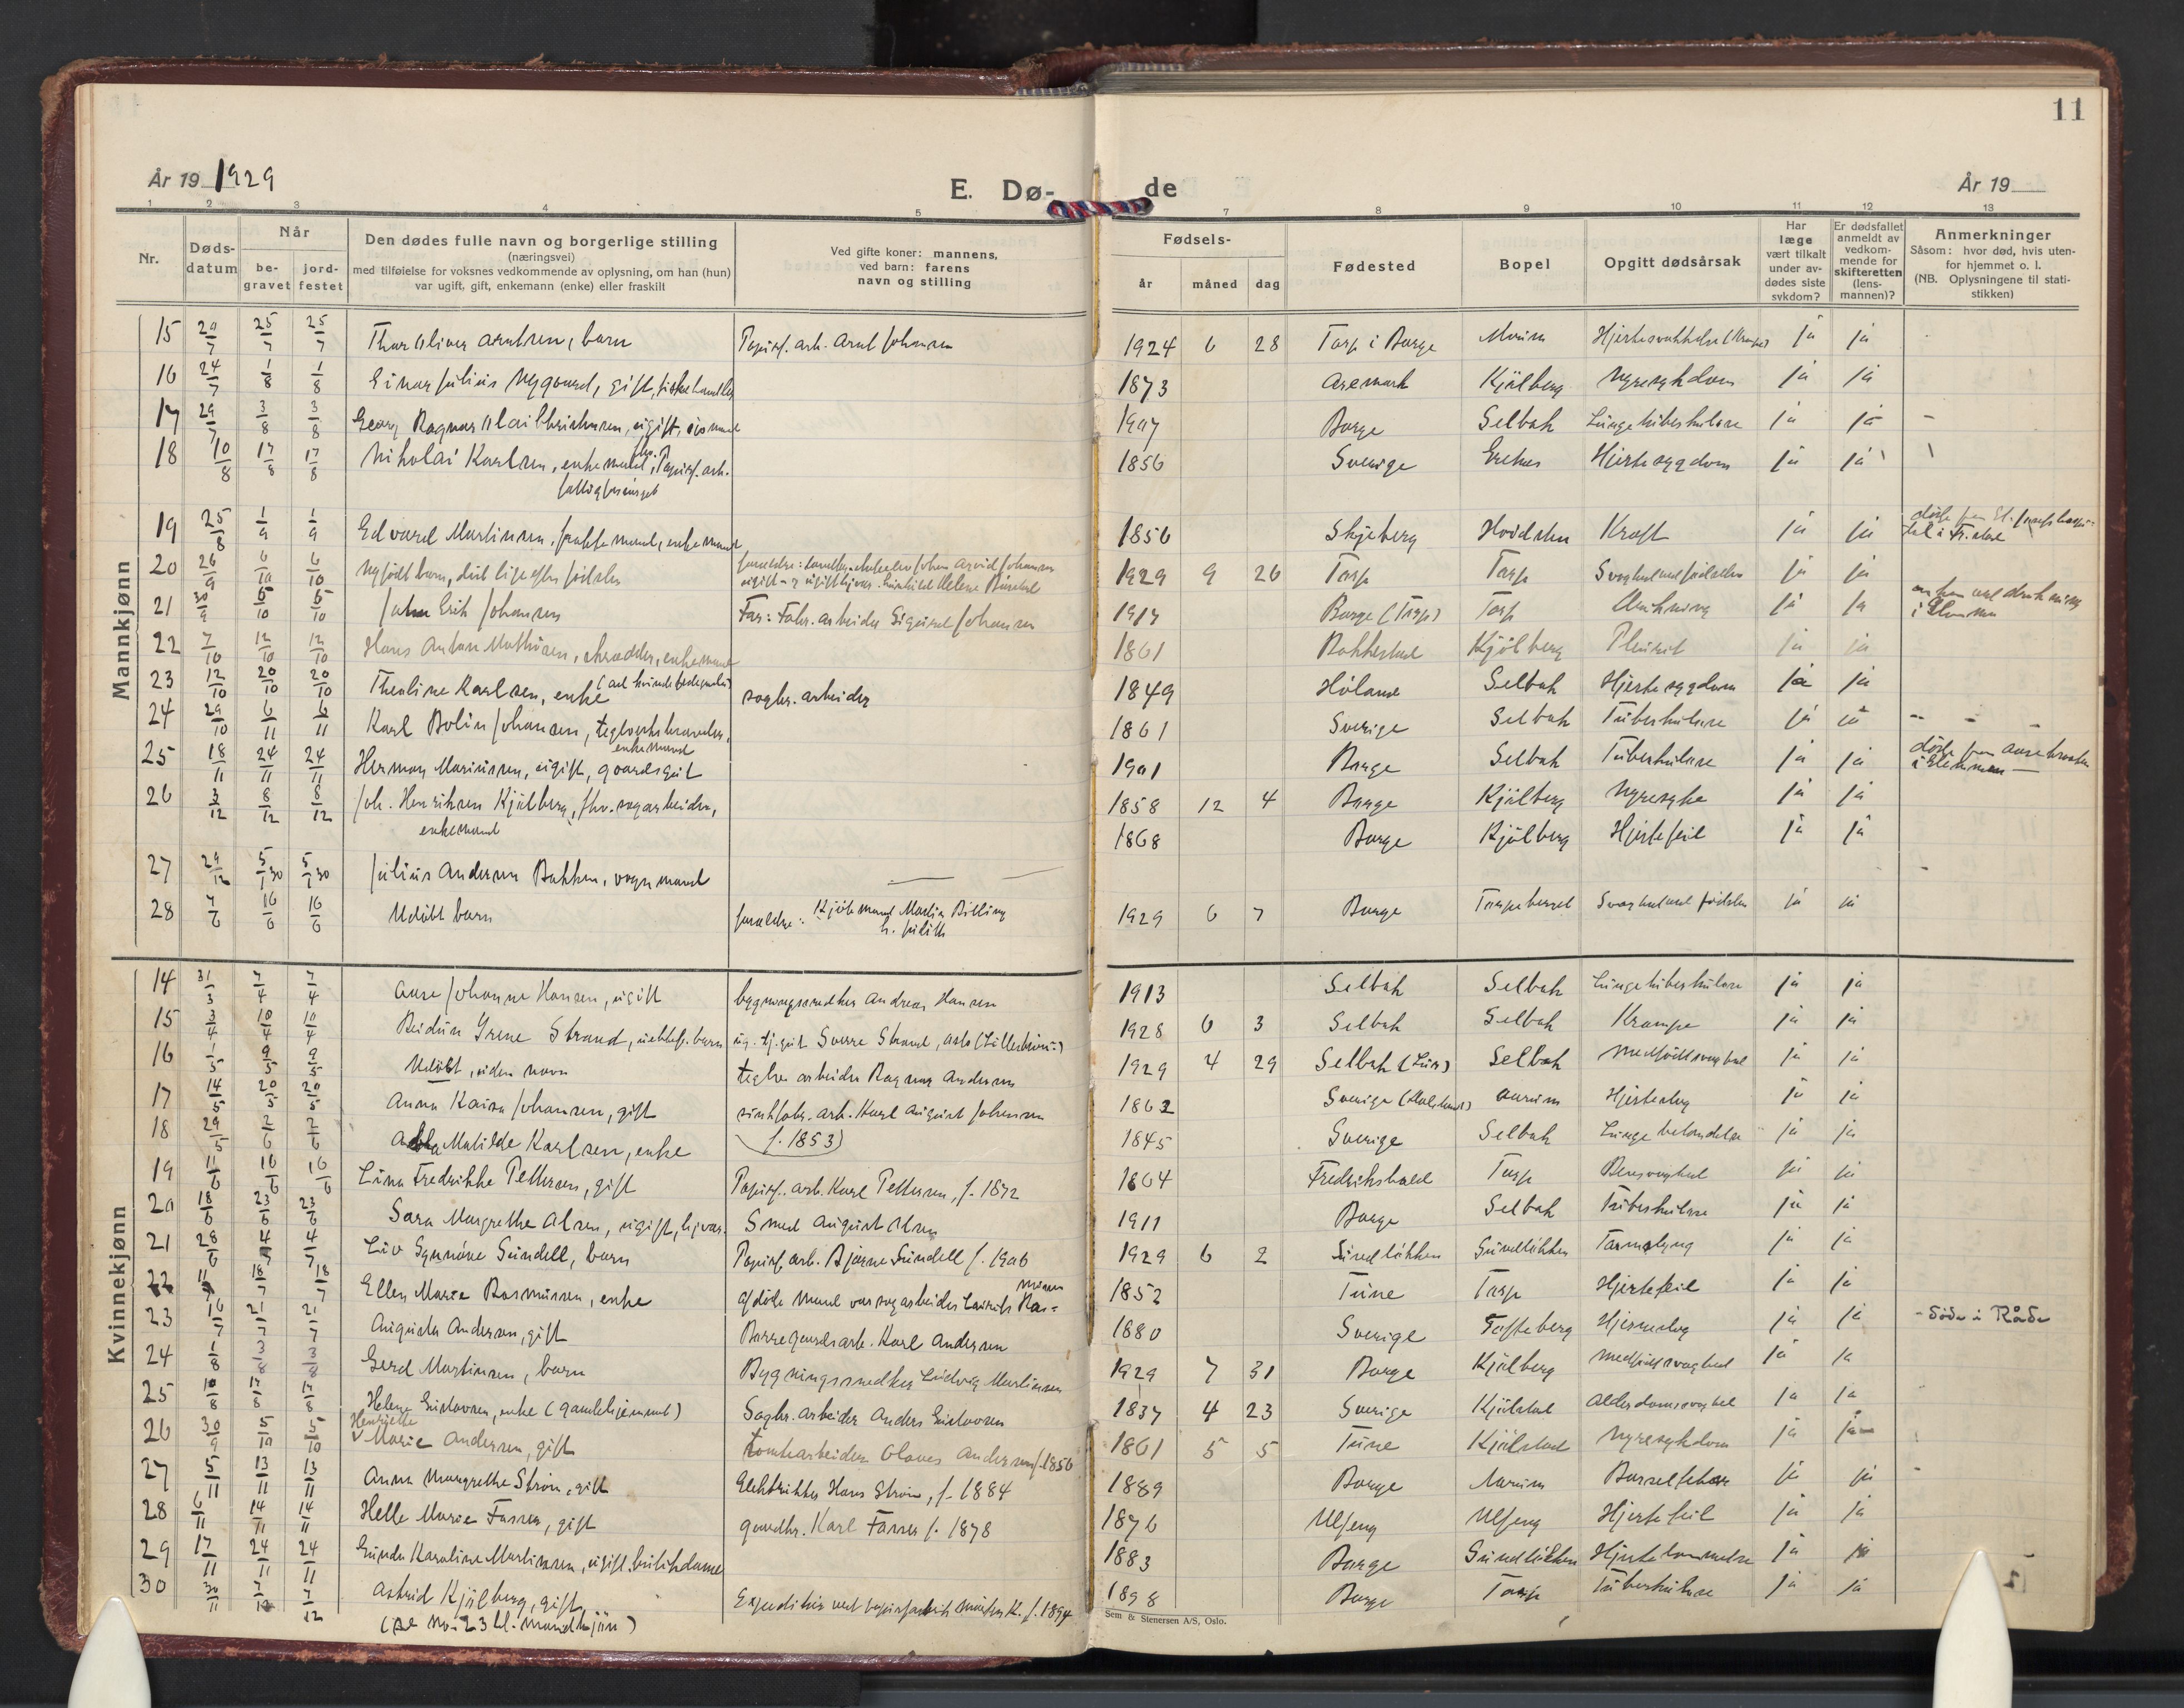 11
År 19 1929
E. Dø- de
År 19
1 2 3 4 5 7 8 9 10 11 12 13
Nr.
Døds-
datum
Når
be-
gravet
jord-
festet
Den dødes fulle navn og borgerlige stilling
(næringsvei)
med tilføielse for voksnes vedkommende av oplysning, om han (hun)
var ugift, gift, enkemann (enke) eller fraskilt
Ved gifte koner: mannens,
ved barn: farens
navn og stilling
Fødsels-
år måned dag
Fødested
Bopel
Opgitt dødsårsak
Har
læge
vært tilkalt
under av-
dødes siste
sykdom?
Er dødsfallet
anmeldt av
vedkom-
mende for
skifteretten
(lens-
mannen)?
Anmerkninger
Såsom: hvor død, hvis uten-
for hjemmet o. l.
(NB. Oplysningene til stati-
stikken)
Mannkjønn
15 20/7 25/7 25/7 Thor Oliver Arntsen, barn Papirf. arb. Arnt Johansen 1924 6 28 Torp i Borge Moum Hjertesvakhelse ja ja
16 24/7 1/8 1/8 Einar Julius Nygaard, gift, fiskehandler 1873 Aremark Kjølberg Nyresykdom ja ja
17 29/7 3/8 3/8 Georg Ragnar Olai Christensen, ugift 1907 Borge Selbak Lungetuberkulose ja ja -
18 10/8 17/8 17/8 Nikolai Karlsen, enkemand, fhv. Papirf. arb. 1856 Sverige Hjertesygdom ja ja
fattigforsørget
19 25/8 1/9 1/9 Edvard Martinsen, enkemand 1856 Skjeberg Kræft ja ja døde paa St. Josefs hospi-
tal i Fr.stad
20 26/9 6/10 6/10 Nyfødt barn, død like efter fødselen forældre: Johan Arvid Johansen 1929 9 26 Torp Torp Svaghed ved fødselen ja ja
21 30/9 5/10 5/10 John Erik Johansen Far: Fabr. arbeider Sigurd Johansen 1917 Borge (Torp) Torp Drukning ja ja ved drukning
i Glomma
22 7/10 12/10 12/10 Hans Anton Mathisen, skrædder, enkemand 1861 Rakkestad Kjølberg Pleurit ja ja
23 12/10 20/10 20/10 Theoline Karlsen, enke sagbr. arbeider 1849 Høland Selbak Hjertesygdom ja ja
24 29/10 6/11 6/11 Karl Bolin Johansen, teglverksbrænder, 1861 Sverige Selbak Tuberkulose ja ja - - -
enkemand
25 18/11 24/11 24/11 Herman Mariussen, ugift, gaardsgut 1901 Borge Selbak Tuberkulose ja ja døde paa
i Glemmen
26 3/12 8/12 8/12 Joh. Henriksen Kjølberg, fhv. sagarbeider, 1858 12 4 Borge Kjølberg Nyresyke ja ja
enkemand
1868 Borge Kjølberg Hjertefeil ja ja
27 29/12 5/1 30 5/1 30 Julius Andersen Bakken, vognmand
28 7/6 16/6 16/6 Udøbt barn forældre: Kjøbmand Martin Billing 1929 6 7 Borge Torpeberget Svaghed ved fødselen ja ja
h. Judith
Kvinnekjønn
14 31/3 7/4 7/4 Aase Johanne Hansen, ugift bygningssnedker Andreas Hansen 1913 Selbak Selbak Lungetuberkulose ja ja
15 3/4 10/4 10/4 Reidun Irene Strand, uektef. barn ug. tj.gut Sverre Strand, Oslo 1928 6 3 Selbak Selbak Krampe ja ja
16 1/5 9/5 9/5 Udøbt, uden navn teglv. arbeider Ragnar Andersen 1929 4 29 Selbak Selbak Medfødt svaghed ja ja
17 14/5 20/5 20/5 Anna Kaisa Johansen, gift arb. Karl August Johansen 1862 Sverige Hjerteslag ja ja
18 29/5 2/6 2/6 Matilde Karlsen, enke f. 1853) 1845 Sverige Selbak Lungebetændelse ja ja
19 11/6 16/6 16/6 Lina Fredrikke Pettersen, gift Papirf. arb. Karl Pettersen, f. 1872 1864 Fredrikshald Torp ja ja
20 18/6 23/6 23/6 Sara Margrethe Olsen, ugift, hjvær. Smed August Olsen 1911 Borge Selbak Tuberkulose ja ja
21 28/6 4/7 4/7 Liv Synnøve Sundell, barn Papirf. arb. Bjarne Sundell f. 1906 1929 6 2 Sundløkken Sundløkken Tarmslyng ja ja
22 18/7 18/7 Ellen Marie Rasmussen, enke afdøde mand var sagarbeider Laurits Ras=
mussen 1852 Tune Torp Hjertefeil ja ja
23 16/7 21/7 21/7 Augusta Andersen, gift Borregaardsarb. Karl Andersen 1880 Sverige Tofteberg Hjerneslag ja ja - Døde i Råde
24 1/8 3/8 3/8 Gerd Martinsen, barn Bygningssnedker Ludvig Martinsen 1929 7 31 Borge Kjølberg Medfødt svaghed ja ja
25 10/8 17/8 17/8 Helene Gustavsen, enke (gamlehjemmet) Sagbr. arbeider Anders Gustavsen 1837 4 23 Sverige Kjølstad Alderdomssvaghed ja ja
26 30/9 5/10 5/10 Henriette
Marie Andersen, gift tomtearbeider Olaves Andersen f. 1856 1861 5 5 Tune Kjølstad Nyresykdom ja ja
27 5/11 13/11 13/11 Anna Margrethe Strøm, gift Elektriker Hans Strøm, f. 1884 1889 Borge Moum Barselfeber ja ja -
28 6/11 14/11 14/11 Helle Marie Fasser, gift gaardbr. Karl Fasser f. 1878 1876 Ulfeng Ulfeng Hjertefeil ja ja
29 17/11 24/11 24/11 Gunda Karoline Martinsen, ugift, butikdame 1883 Borge Sundløkken Hjertelammelse ja ja
30 30/11 7/12 7/12 Astrid Kjølberg, gift Expeditør ved papirfabrik K. f. 1894 1898 Borge Torp Tuberkulose ja ja
(Se no. 23 bl. mandkjøn)
Sem & Stenersen A/S, Oslo.